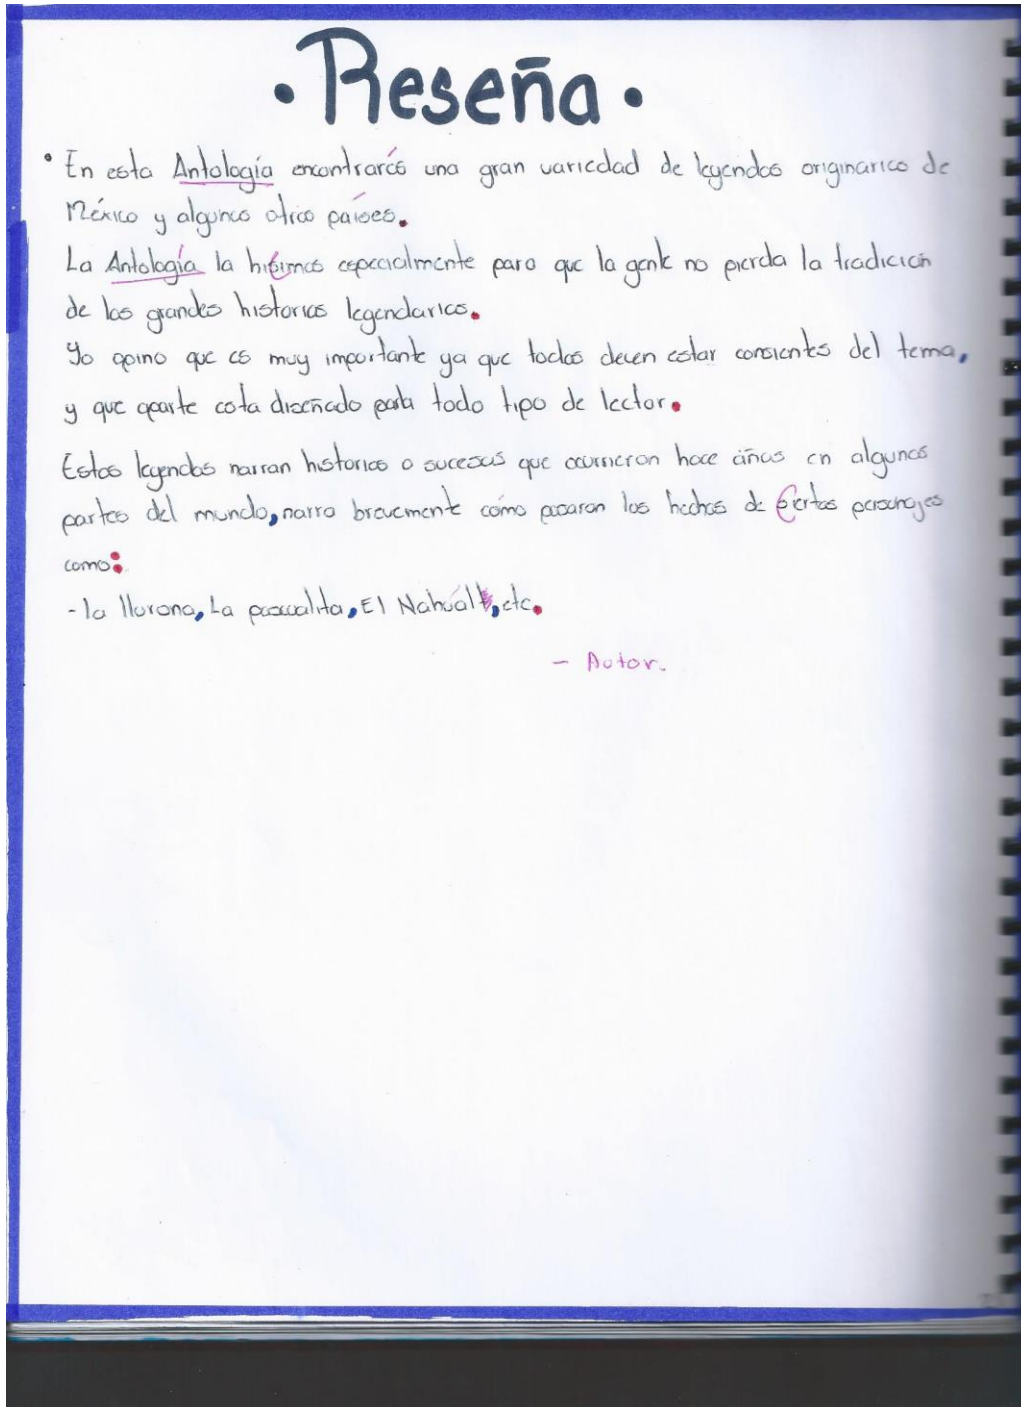 • Reseña •
• En esta Antología encontrarás una gran variedad de leyendas originarias de
México y algunos otros países.
La Antología la hicimos especialmente para que la gente no pierda la tradición
de las grandes historias legendarias.
Yo opino que es muy importante ya que todos deven estar consientes del tema,
y que aparte esta diseñado para todo tipo de lector.
Estas leyendas narran historias o sucesos que ocurrieron hace años en algunas
partes del mundo, narra brevemente cómo pasaron los hechos de Ciertos personajes
como:
- la llorona, La pascualita, El Nahual, etc.
- Autor.